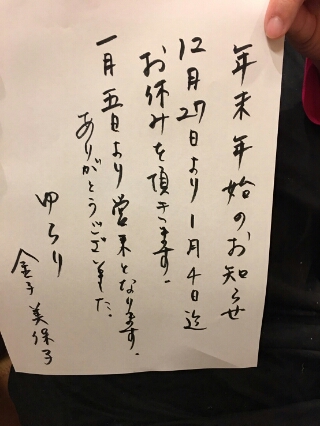 年末年始のお知らせ
12月27日より1月4日迄
お休みを頂きます。
一月五日より営業となります。
ありがとうございました。
ゆらり
金子美保子